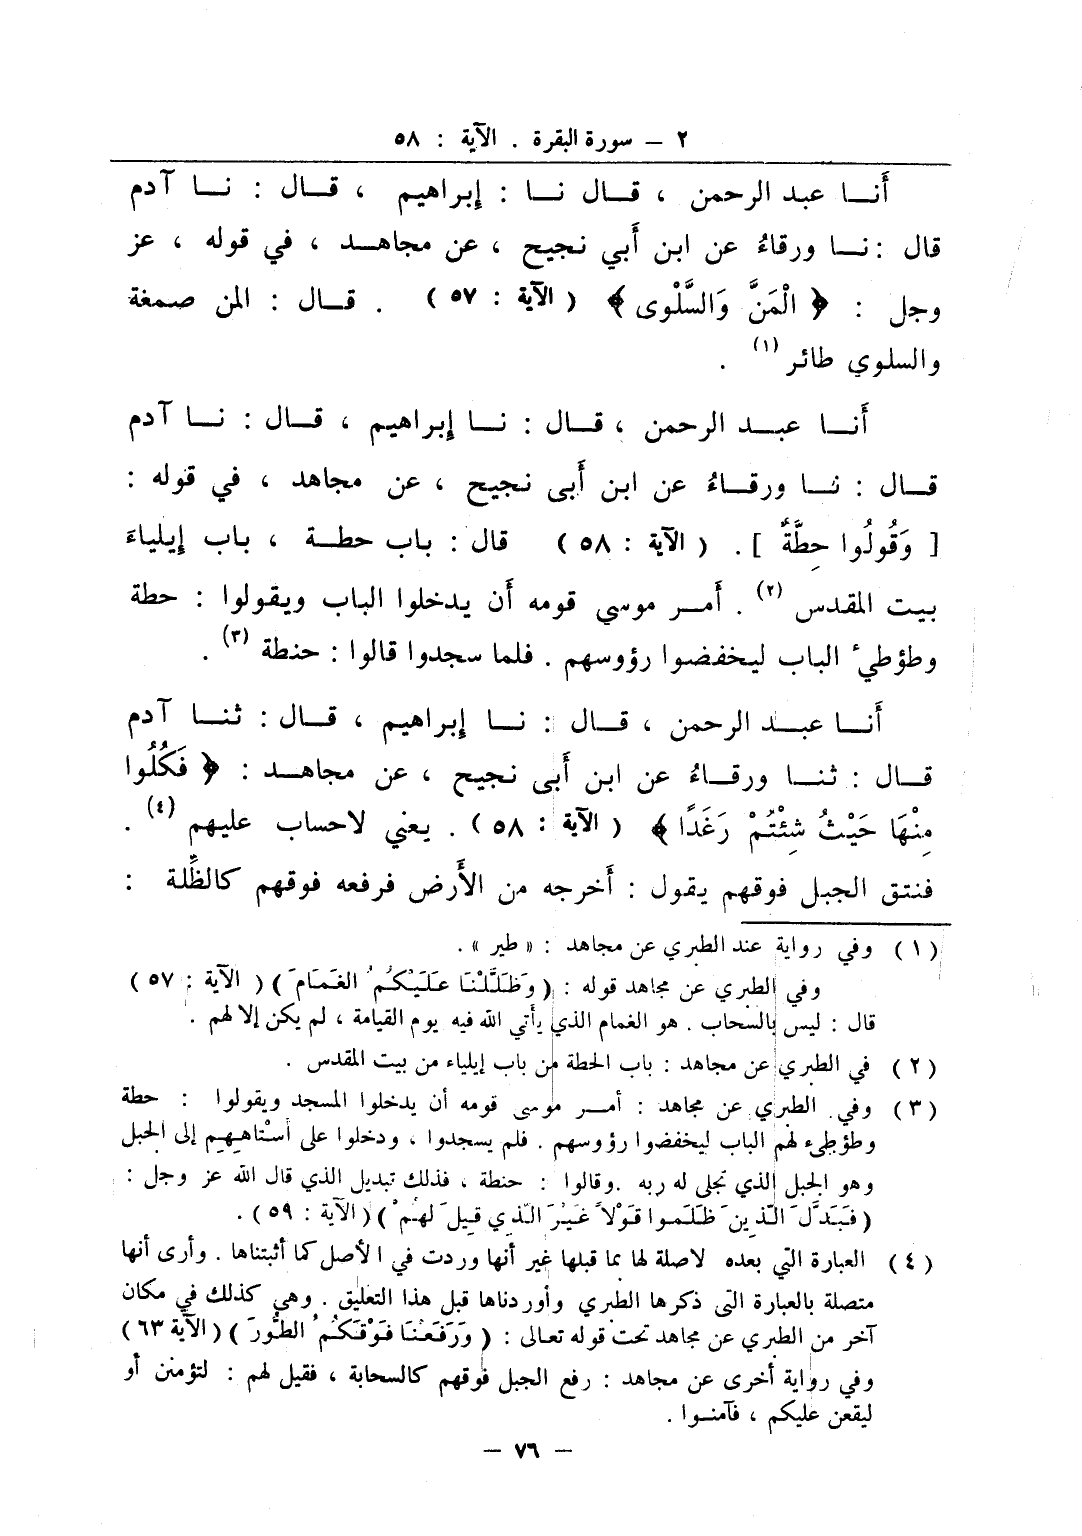 ٢ – سورة البقرة . الآية : ٥٨
أنا عبد الرحمن ، قال نا : إبراهيم ، قال : نا آدم
قال : نا ورقاءُ عن ابن أبي نجيح ، عن مجاهد ، في قوله ، عز
وجل : ﴿ الْمَنَّ وَالسَّلْوى ﴾ ( الآية : ٥٧ ) . قال : المن صمغة
والسلوي طائر (١) .
أنا عبد الرحمن ، قال : نا إبراهيم ، قال : نا آدم
قال : نا ورقاءُ عن ابن أبى نجيح ، عن مجاهد ، في قوله :
[ وَقُولُوا حِطَّةٌ ] . ( الآية : ٥٨ ) قال : باب حطة ، باب إيلياءَ
بيت المقدس (٢) . أمر موسي قومه أن يدخلوا الباب ويقولوا : حطة
وطؤطيءَ الباب ليخفضوا رؤوسهم . فلما سجدوا قالوا : حنطة (٣) .
أنا عبد الرحمن ، قال : نا إبراهيم ، قال : ثنا آدم
قال : ثنا ورقاءُ عن ابن أبى نجيح ، عن مجاهد : ﴿ فَكُلُوا
مِنْهَا حَيْثُ شِئْتُمْ رَغَدًا ﴾ ( الآية : ٥٨ ) . يعني لاحساب عليهم (٤) .
فنتق الجبل فوقهم يقول : أخرجه من الأرض فرفعه فوقهم كالظُّلة :
( ١ ) وفي رواية عند الطبري عن مجاهد : « طير » .
وفي الطبري عن مجاهد قوله : ( وَظَلَّلْنَا عَلَيْكُمُ الغَمَامَ ) ( الآية : ٥٧ )
قال : ليس بالسحاب . هو الغمام الذي يأتي الله فيه يوم القيامة ، لم يكن إلا لهم .
( ٢ ) في الطبري عن مجاهد : باب الحطة من باب إيلياء من بيت المقدس .
( ٣ ) وفي الطبري عن مجاهد : أمر موسى قومه أن يدخلوا المسجد ويقولوا : حطة
وطؤطىء لهم الباب ليخفضوا رؤوسهم . فلم يسجدوا ، ودخلوا على أسْتاهِهِم إلى الجبل
وهو الجبل الذي تجلى له ربه . وقالوا : حنطة ، فذلك تبديل الذي قال الله عز وجل :
( فَبَدَّلَ الَّذِينَ ظَلَمُوا قَوْلاً غَيْرَ الَّذِي قِيلَ لَهُمْ ) ( الآية : ٥٩ ) .
( ٤ ) العبارة التي بعده لاصلة لها بما قبلها غير أنها وردت في الأصل كما أثبتناها . وأرى أنها
متصلة بالعبارة التى ذكرها الطبري وأوردناها قبل هذا التعليق . وهي كذلك في مكان
آخر من الطبري عن مجاهد تحت قوله تعالى : ( وَرَفَعْنَا فَوْقَكُمُ الطُّورَ ) ( الآية ٦٣ )
وفي رواية أخرى عن مجاهد : رفع الجبل فوقهم كالسحابة ، فقيل لهم : لتؤمنن أو
ليقعن عليكم ، فآمنوا .
– ٧٦ –